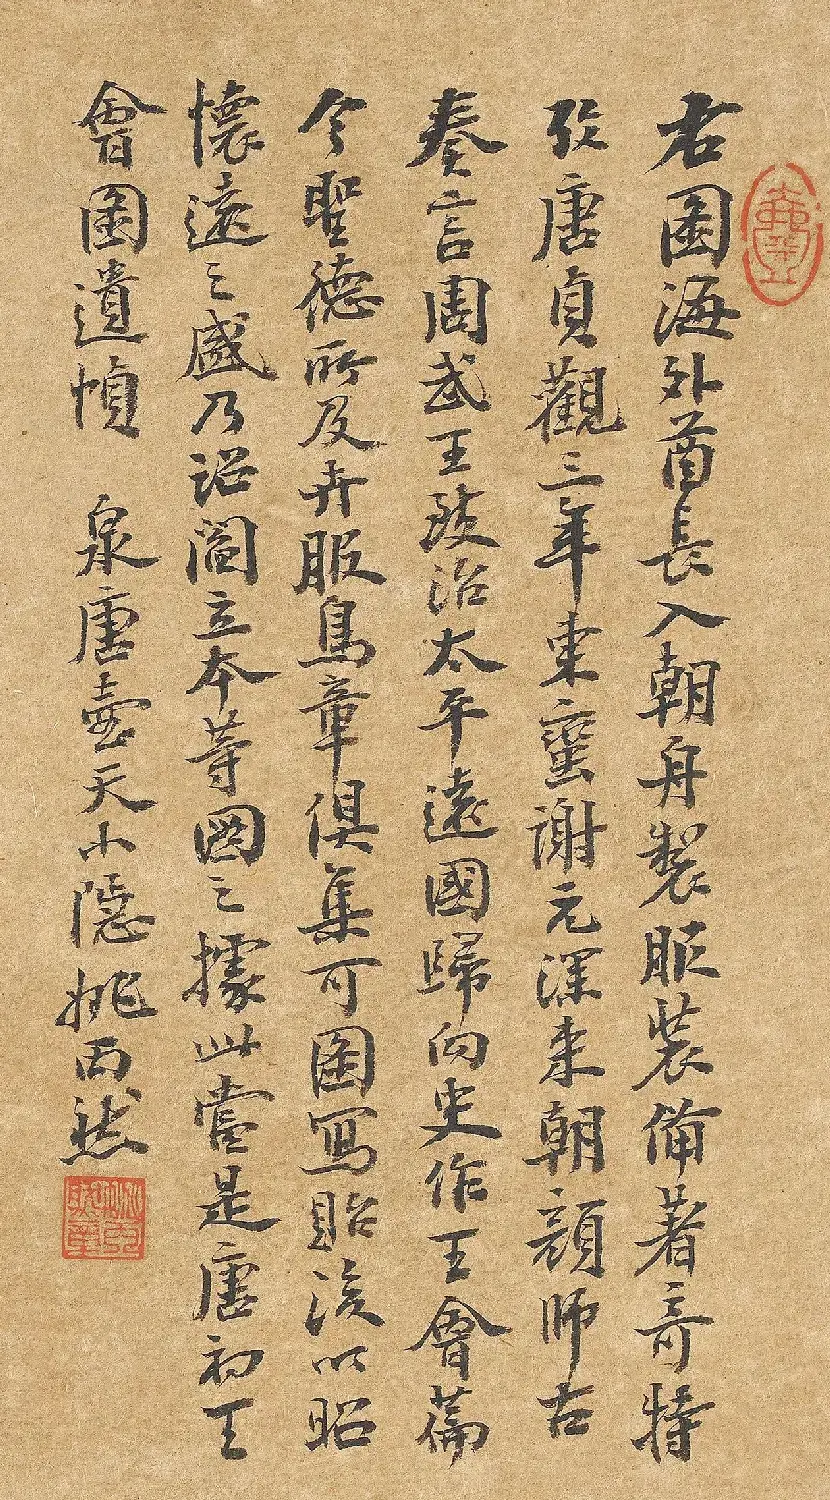 右圖海外酋長入朝舟製服裝備著奇特
攷唐貞觀三年東蠻謝元深来朝顔師古
奏言周武王致治太平遠國歸向史作王會篇
今聖德所及卉服鳥章俱集可圖寫貽後以昭
懷遠之盛乃詔閻立本等圖之據此當是唐初王
會圖遺幀 泉唐壺天小隱姚丙然